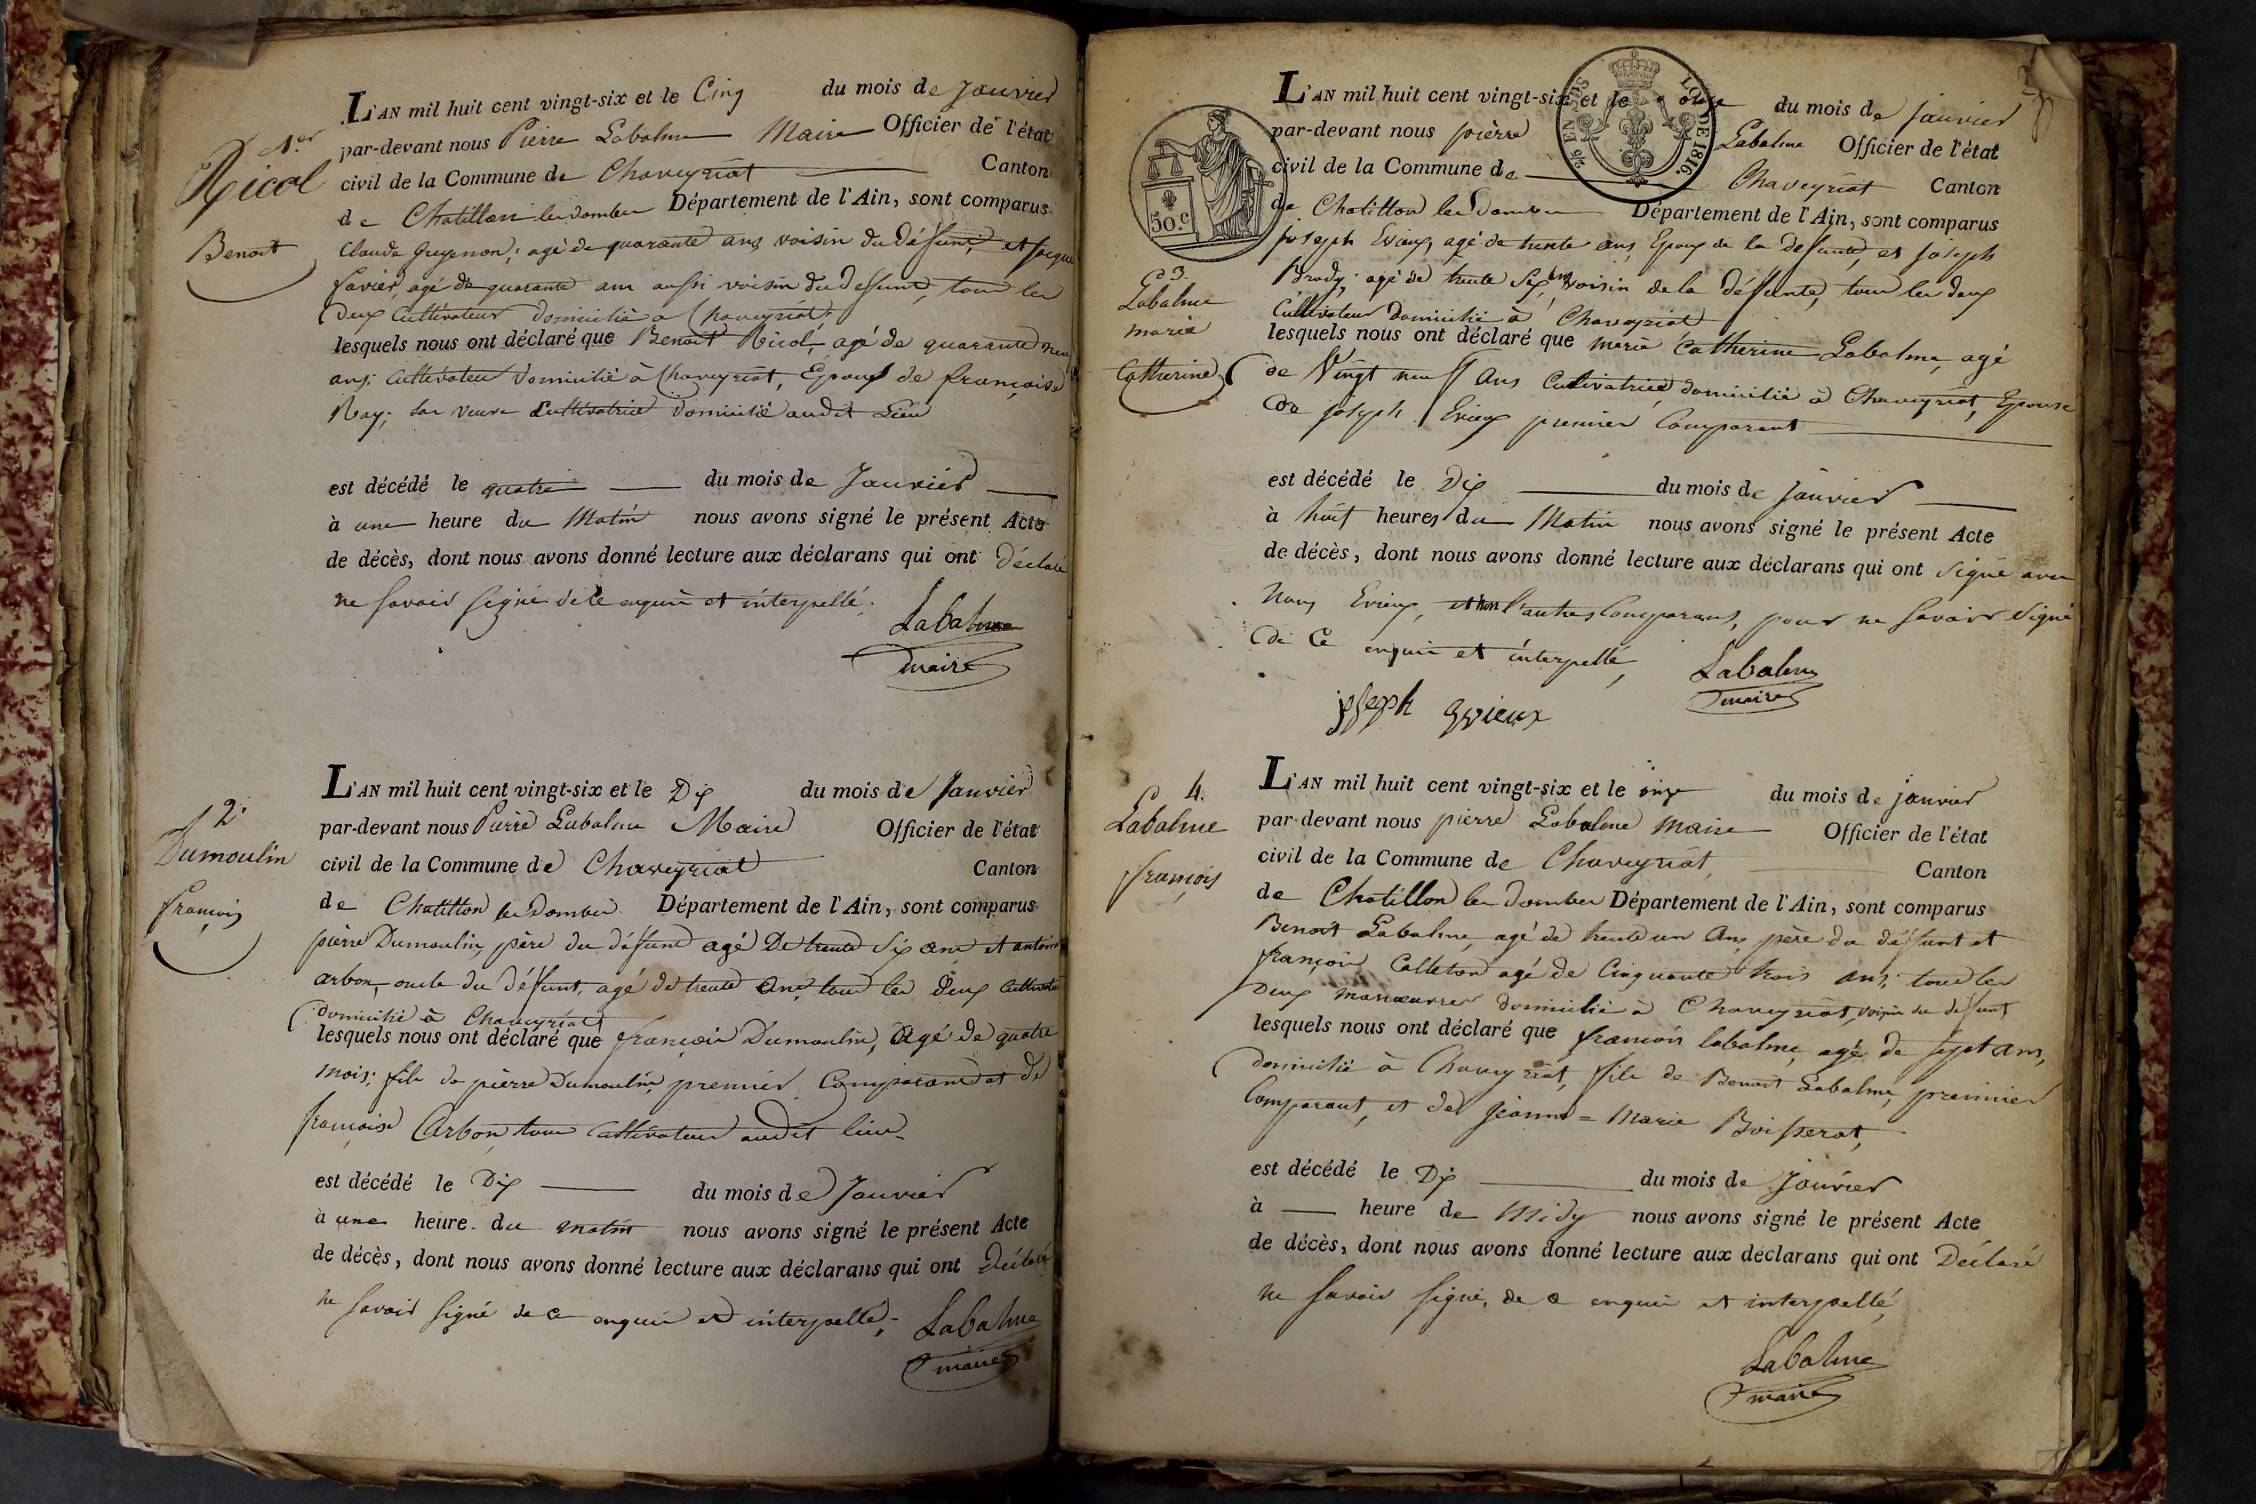 1.er
Nicol
Benoit
L'AN mil huit cent vingt-six et le Cinq du mois de Janvier
par-devant nous Pierre Labalme Maire Officier de l'état
civil de la Commune de Chaveyriat Canton
de Chatillon les dombes Département de l'Ain, sont comparus
Claude , agé de quarante ans voisin du défunt, et
favier, agé de quarante ans aussi voisin du defunt, tous les
deux Cultivateur domicilié a Chaveyriat,
lesquels nous ont déclaré que Benoit Nicol, agé de quarante neuf
ans, Cultivateur domicilié à Chaveyriat, Epoux de françoise
Ray, sa veuve Cultivatrice domicilié audit Lieu
est décédé le quatre du mois de Janvier
à une heure du Matin nous avons signé le présent Acte
de décès, dont nous avons donné lecture aux déclarans qui ont déclaré
ne savoir signé de ce enquis et interpellé.
Labalme
maire
2.
Dumoulin
françois
L'AN mil huit cent vingt-six et le Dix du mois de Janvier
par-devant nous Pierre Labalme Maire Officier de l'état
civil de la Commune de Chaveyriat Canton
de Chatillon les Dombes Département de l'Ain, sont comparus
pierre Dumoulin, père du défunt agé De trente six ans et antoine
arbon, oncle du défunt, agé de trente ans, tous les deux Cultivateur
domicilié à Chaveyriat
lesquels nous ont déclaré que françois Dumoulin, Agé de quatre
mois, fils de pierre Dumoulin, premier Comparant et de
françoise Carbon, tous Cultivateur audit lieu
est décédé le Dix du mois de Janvier
à une heure du matin nous avons signé le présent Acte
de décès, dont nous avons donné lecture aux déclarans qui ont Déclaré
ne savoir signé de ce enquis et interpellé,
Labalme
maire
50.c
9/2 EN SUS
LOI DE 1816.
3.
Labalme
marie
Catherine
L'AN mil huit cent vingt-six et le onze du mois de janvier
par-devant nous pierre Labalme Officier de l'état
civil de la Commune de Chaveyriat Canton
de Chatillon les Dombes Département de l'Ain, sont comparus
joseph Evieux, agé de trente ans, Epoux de la defunte, et joseph
Brody, agé de trente six ans, voisin de la défunte, tous les deux
Cultivateur Domicilié à Chaveyriat
lesquels nous ont déclaré que marie Catherine Labalme, agé
de Vingt neuf ans Cultivatrice, domicilié à Chaveyriat, Epouse
de joseph Evieux premier Comparant
est décédé le Dix du mois de janvier
à huit heures du Matin nous avons signé le présent Acte
de décès, dont nous avons donné lecture aux déclarans qui ont signé avec
Nous Evieux, et non l'autre Comparans, pour ne savoir signé
de Ce enquis et interpellé,
Labalme
maire
joseph evieux
4.
Labalme
françois
L'AN mil huit cent vingt-six et le onze du mois de janvier
par-devant nous pierre Labalme maire Officier de l'état
civil de la Commune de Chaveyriat Canton
de Chatillon les dombes Département de l'Ain, sont comparus
Benoit Labalme, agé de trente un ans, père du défunt et
françois Calleton agé de Cinquante trois ans, tous les
deux manoeuvres domicilié à Chaveyriat, voisin du défunt
lesquels nous ont déclaré que françois labalme, agé de sept ans,
domicilié à Chaveyriat, fils de Benoit Labalme, premier
Comparant, et de jeanne = Marie Boisserat,
est décédé le Dix du mois de janvier
à heure de Midy nous avons signé le présent Acte
de décès, dont nous avons donné lecture aux déclarans qui ont Déclaré
ne savoir signé, de ce enquis et interpellé,
Labalme
maire